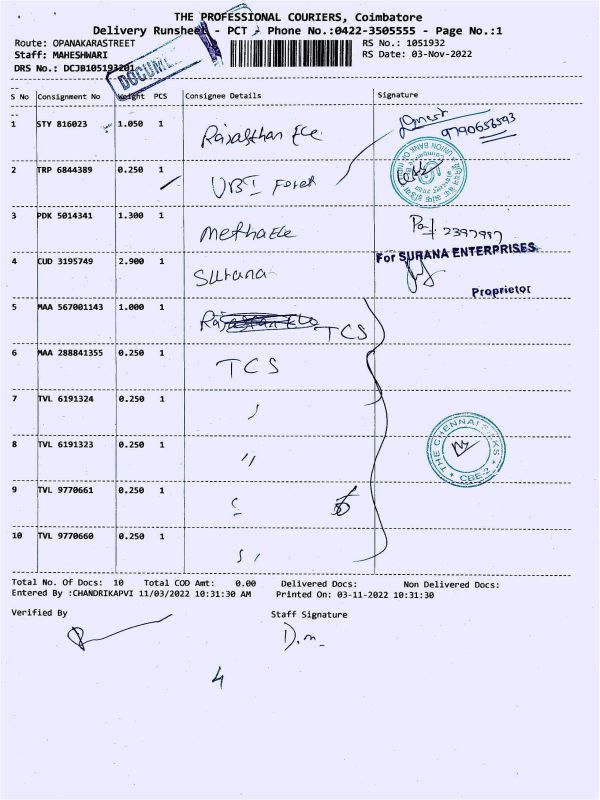 THE PROFESSIONAL COURIERS, Coimbatore
Delivery Runsheet - PCT - Phone No.:0422-3505555 - Page No.:1
Route: OPANAKARASTREET RS No.: 1051932
Staff: MAHESHWARI RS Date: 03-Nov-2022
DRS No.: DCJB105193201
S No Consignment No Weight PCS Consignee Details Signature
1 STY 816023 1.050 1 Rajasthan Ele
9790656593
2 TRP 6844389 0.250 1 UBI Forex
UNION BANK OF INDIA
3 PDK 5014341 1.300 1 Metha Ele
2397997
4 CUD 3195749 2.900 1 Surana
For SURANA ENTERPRISES
Proprietor
5 MAA 567001143 1.000 1 TCS
6 MAA 288841355 0.250 1 TCS
7 TVL 6191324 0.250 1
8 TVL 6191323 0.250 1 "
THE CHENNAI SILKS
CBE-2
9 TVL 9770661 0.250 1
10 TVL 9770660 0.250 1
Total No. Of Docs: 10 Total COD Amt: 0.00 Delivered Docs: Non Delivered Docs:
Entered By :CHANDRIKAPVI 11/03/2022 10:31:30 AM Printed On: 03-11-2022 10:31:30
Verified By Staff Signature
D.m
4